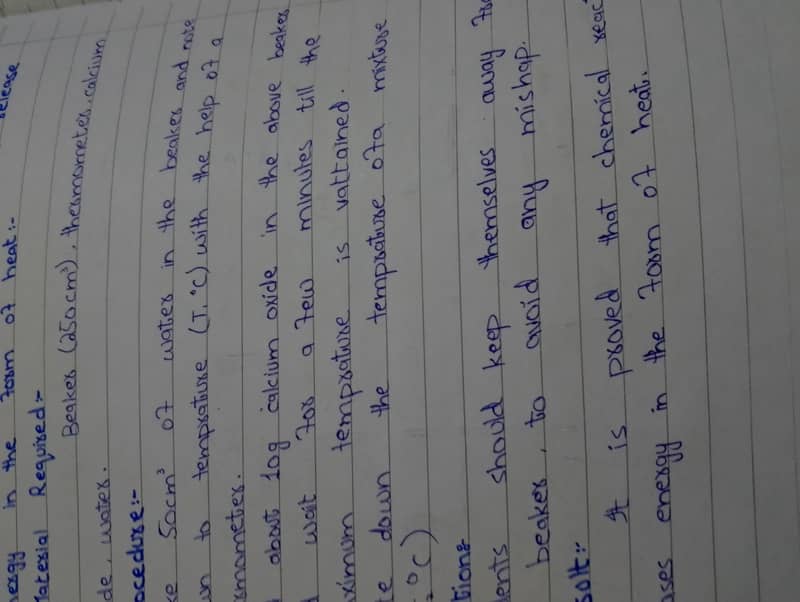 release
ergy in the form of heat :-
Material Required :-
Beaker (250cm³), thermometer, calcium
de, water.
ocedure :-
ke 50cm³ of water in the beaker and note
wn to temprature (T, °C) with the help of a
ermometer.
about 10g calcium oxide in the above beaker
wait for a few minutes till the
ximum temprature is vattained.
te down the temprature of a mixture
°C)
tions
dents should keep themselves away
beaker, to avoid any mishap.
sult :-
It is proved that chemical reac
uses energy in the form of heat.